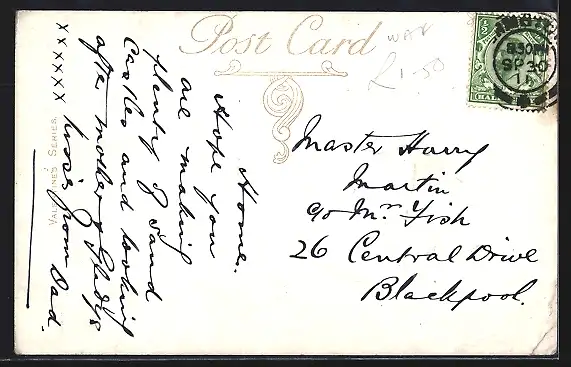 Post Card
WAX
R 1-50
8.30 PM
SP 30
VALENTINE'S SERIES
Home.
Hope you
are making
plenty of sand
Castles and looking
after mother & Gladys
love from Dad.
xxxxxxx
Master Harry
Martin
c/o Mr. Fish
26 Central Drive
Blackpool.